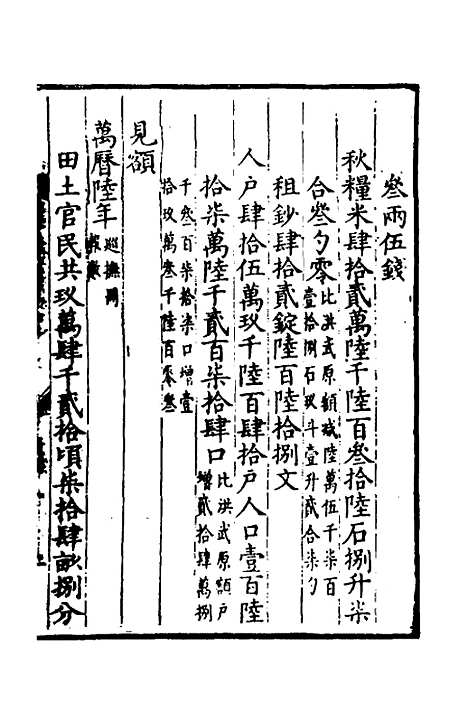 叄兩伍錢
秋糧米肆拾貳萬陸千陸百叄拾陸石捌升柒
合叄勺零比洪武原額減陸萬伍千柒百
壹拾捌石玖斗壹升貳合柒勺
租鈔肆拾貳錠陸百陸拾捌文
人户肆拾伍萬玖千陸百肆拾戶人口壹百陸
拾柒萬陸千貳百柒拾肆口比洪武原額戶
增貳拾肆萬捌
千叄百柒拾柒口增壹
拾玖萬叄千陸百零叄
見額
萬曆陸年巡撫周
報數
田土官民共玖萬肆千貳拾頃柒拾肆畝捌分